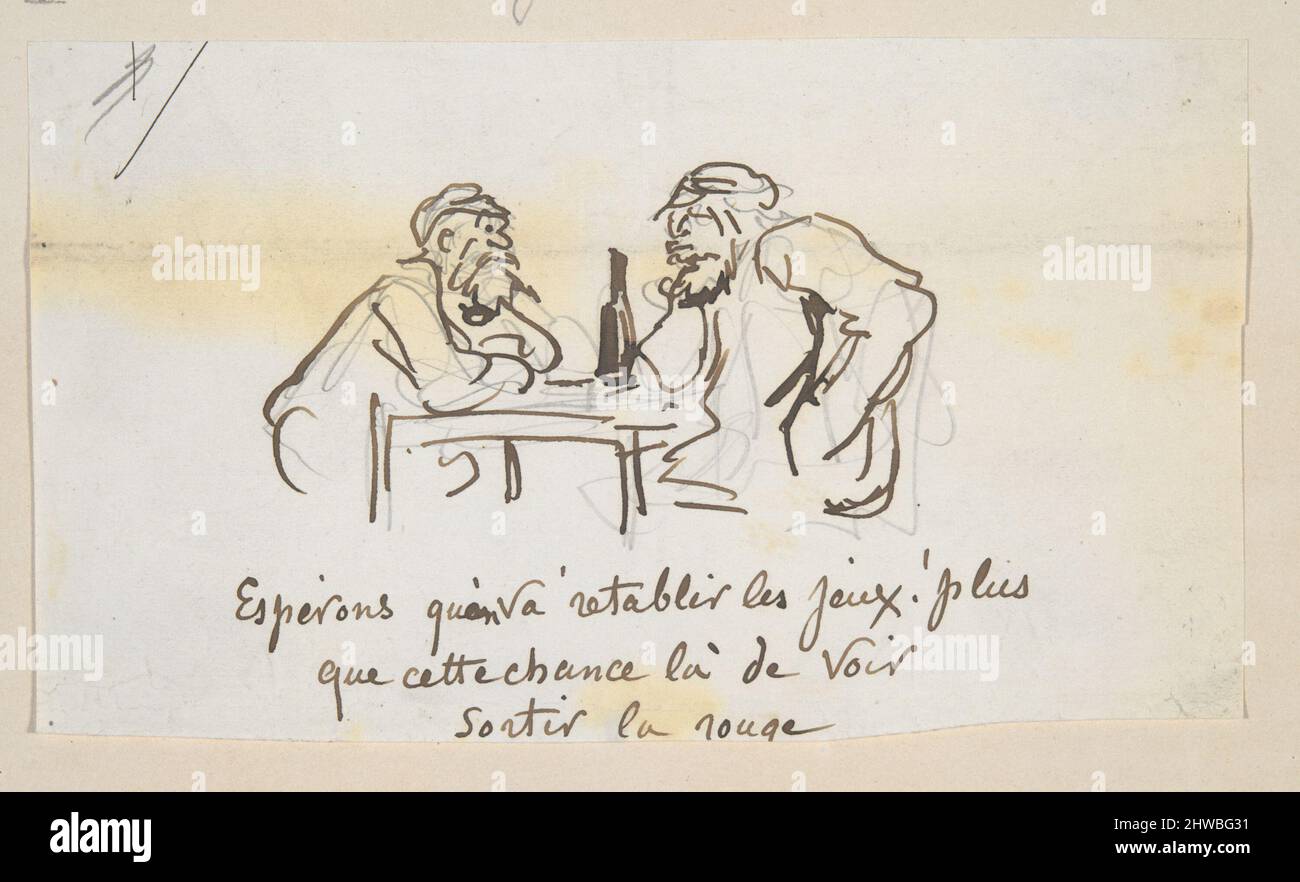 Espérons qu'on va retablir les jeux! plus
que cette chance là de voir
sortir la rouge
alamy
Image ID: 2HWBG31
www.alamy.com